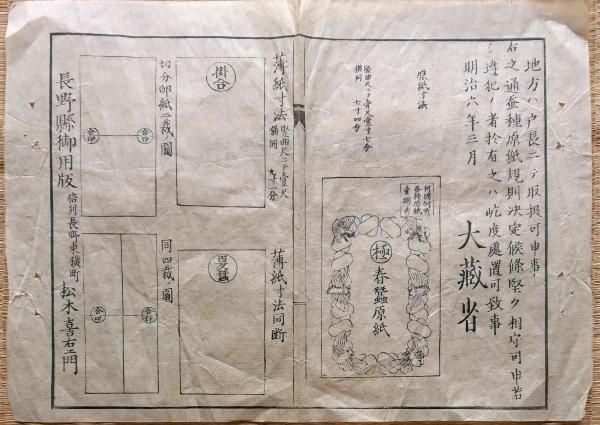 地方ハ戸長ニテ取扱可申事
右之通蚕種原紙規則決定候條堅ク相守可申若
シ違犯ノ者於有之ハ屹度處置可致事
明治六年二月
大藏省
原紙寸法
竪曲尺ニテ壹尺壹寸七分
横同 七寸四分
極
春蠶原紙
薄紙寸法 竪曲尺ニテ壹尺
横同
掛合
薄紙寸法同断
切分印紙二裁ノ圖
合印
合印
同四裁ノ圖
合印
合印
長野縣御用版
信州長野東横町
松木喜右エ門